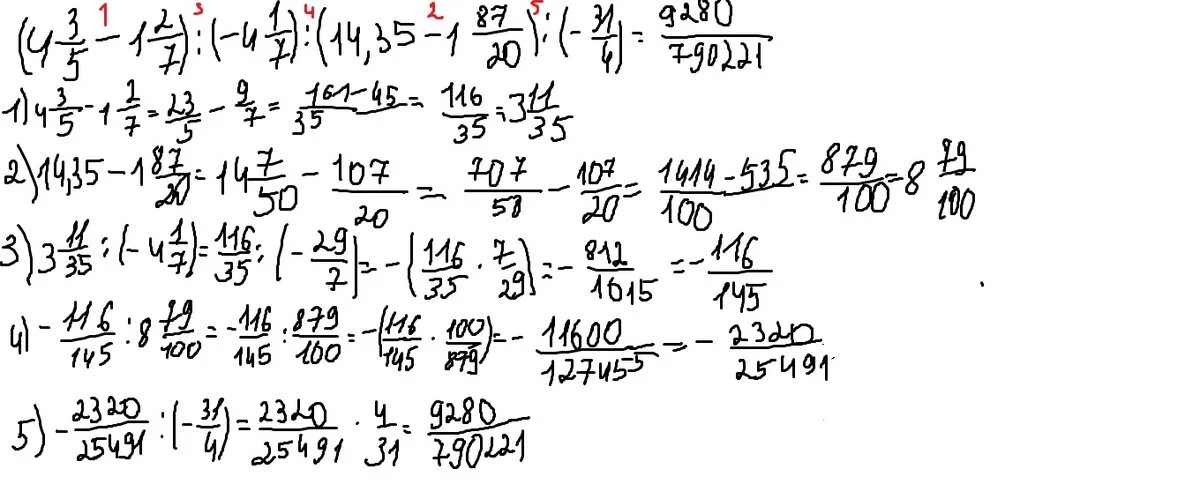 1 3 4 2 5
(4 3/5 - 1 2/7) : (-4 1/7) : (14,35 - 1 87/20) : (-31/4) = 9280/790221
1) 4 3/5 - 1 2/7 = 23/5 - 9/7 = 161-45/35 = 116/35 = 3 11/35
2) 14,35 - 1 87/20 = 14 7/50 - 107/20 = 707/50 - 107/20 = 1414-535/100 = 879/100 = 8 79/100
3) 3 11/35 : (-4 1/7) = 116/35 : (-29/7) = -(116/35 · 7/29) = -812/1015 = -116/145
4) -116/145 : 8 79/100 = -116/145 : 879/100 = -(116/145 · 100/879) = -11600/127455 = -2320/25491
5) -2320/25491 : (-31/4) = 2320/25491 · 4/31 = 9280/790221